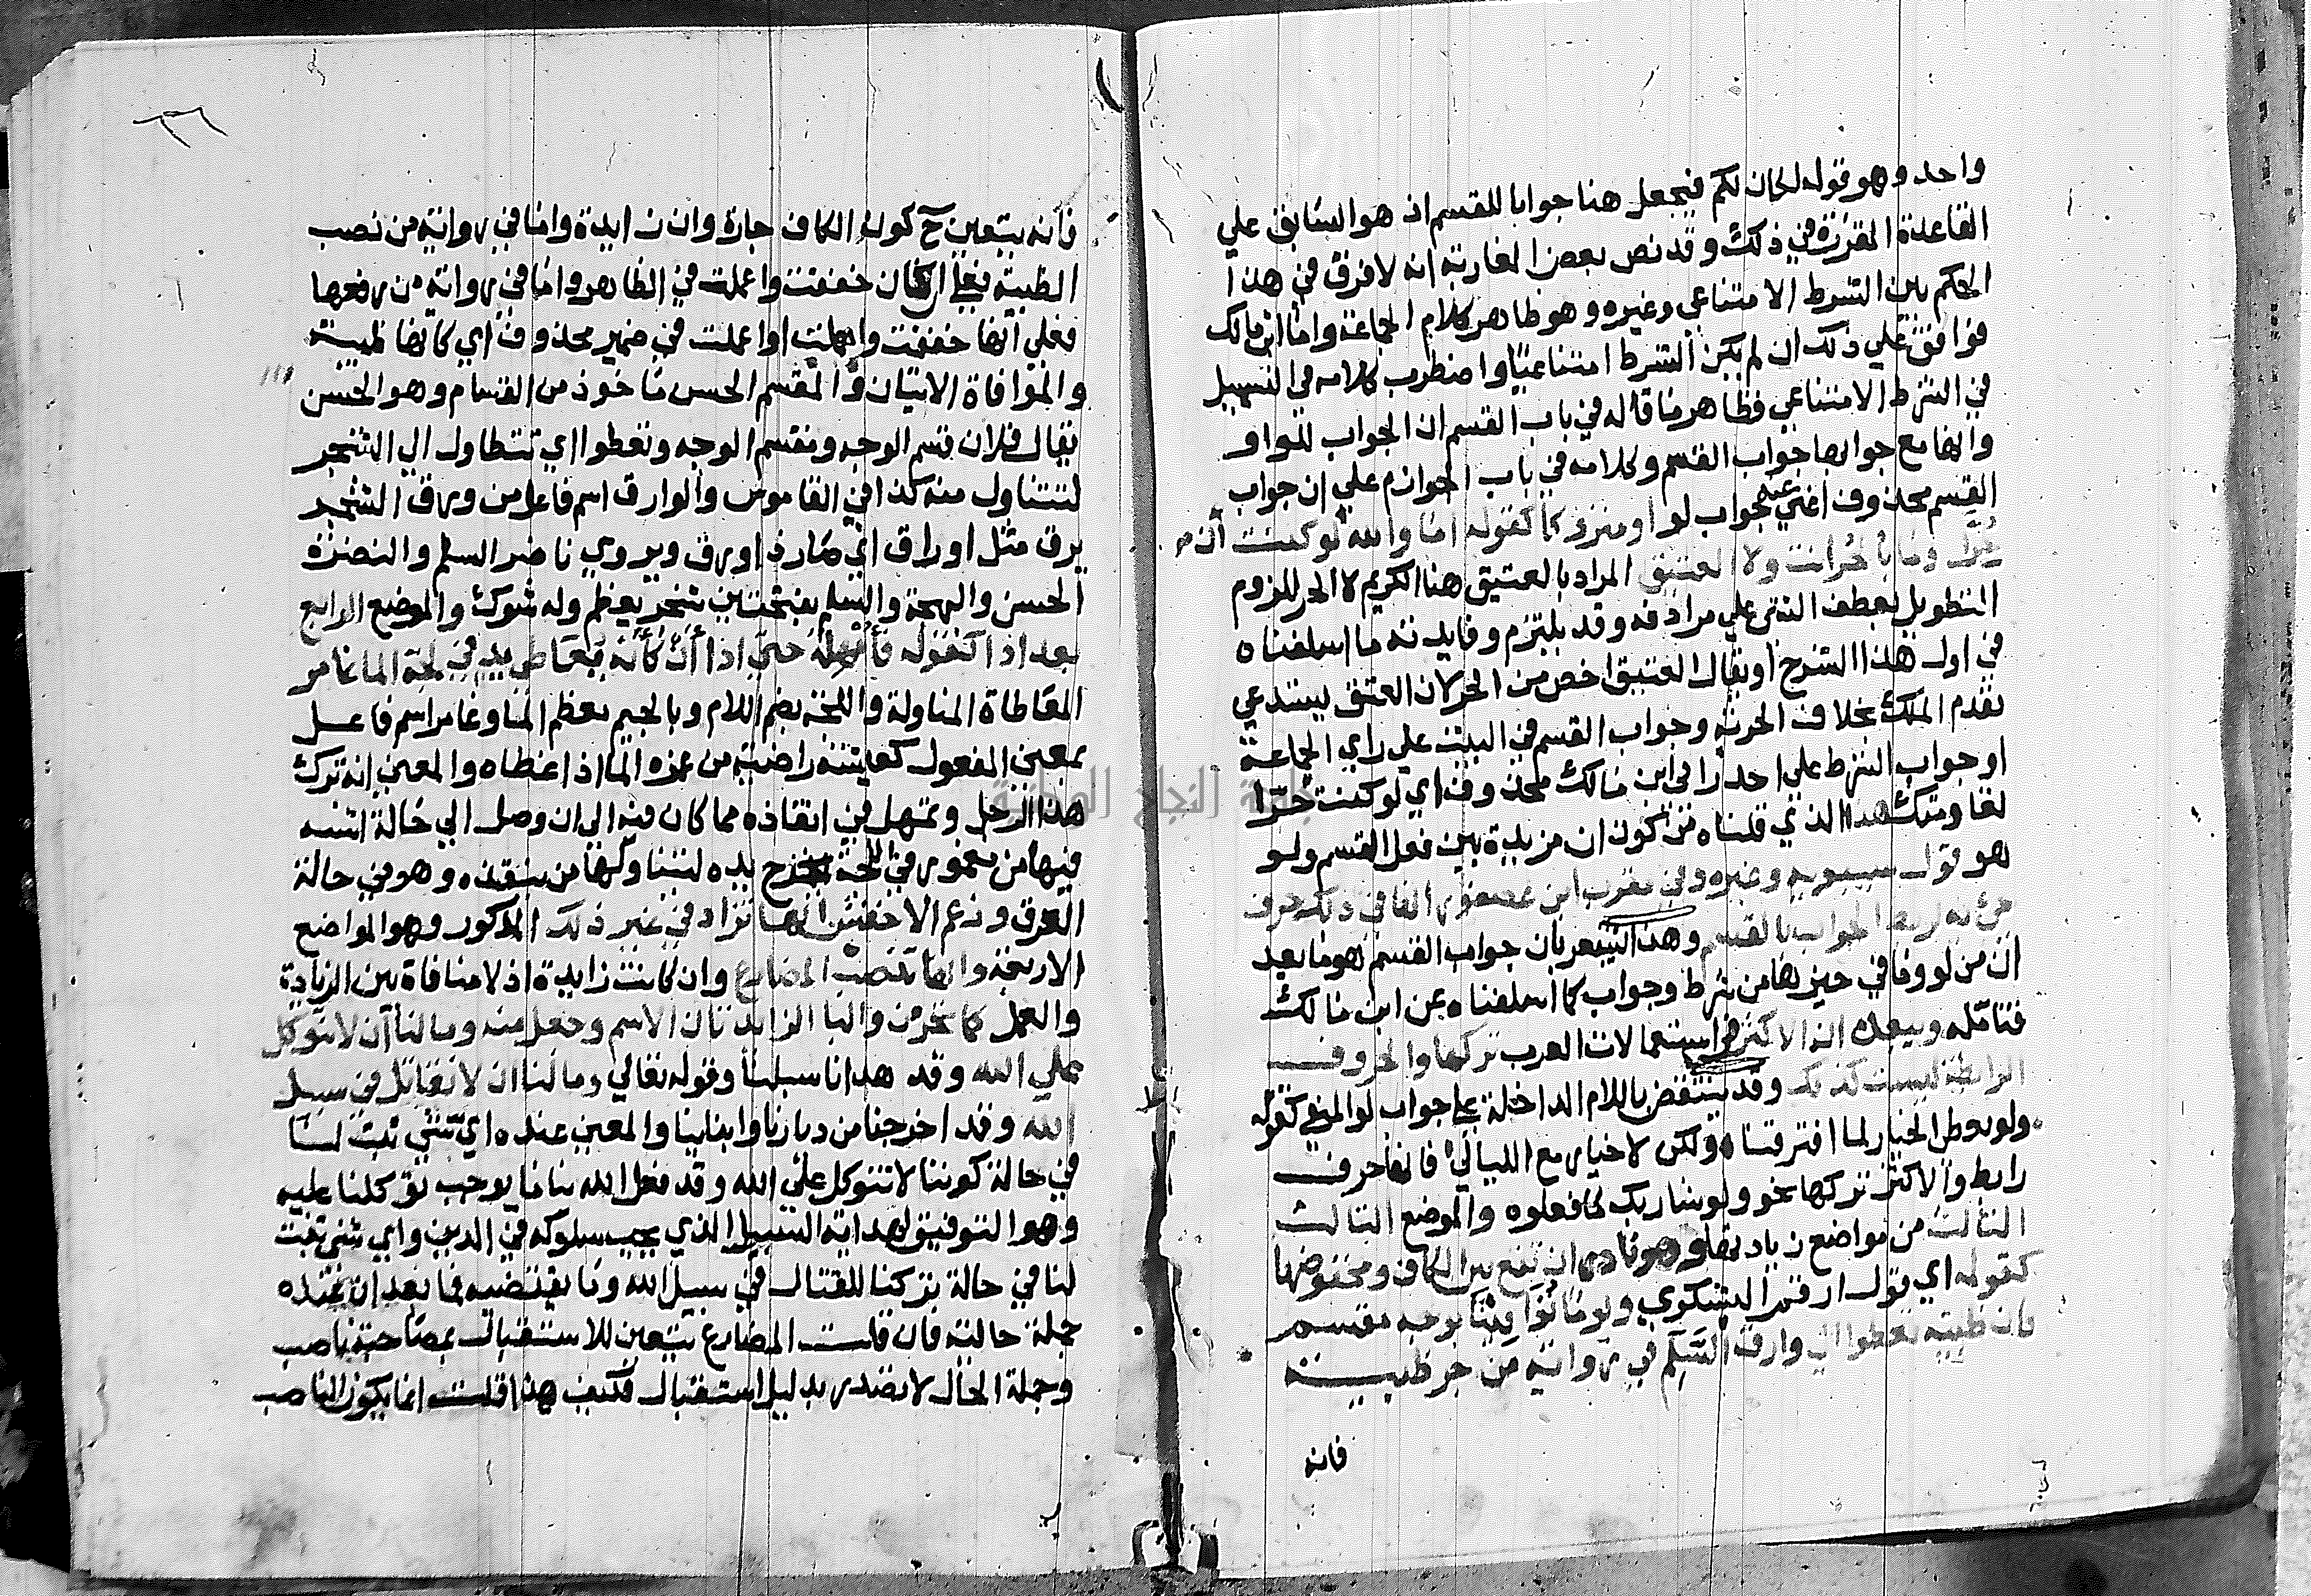 واحد وهو قوله لكان لكم فيجعل هنا جوابا للقسم اذ هو السابق علي
القاعدة المقررة في ذلك وقد نص بعض المغاربة انه لا فرق في هذا
الحكم بين الشرط الامتناعي وغيره وهو ظاهر كلام الجماعة واما ابن مالك
فوافق علي ذلك ان لم يكن الشرط امتناعيا واضطرب كلامه في التسهيل
في الشرط الامتناعي فظاهر ما قاله في باب القسم ان الجواب للو او
وانها مع جوابها جواب القسم وكلامه في باب الجوازم علي ان جواب
القسم محذوف اغني عنه جواب لو او متروكا كقوله اما والله لو كنت
حرا وما بالحر انت ولا العتيق المراد بالعتيق هنا الكريم لا الحر للزوم
التطويل بعطف الشي علي مرادفه وقد يلتزم وفايدته ما اسلفناه
في اول هذا الشرح او يقال العتيق اخص من الحر لان العتق يستدعي
تقدم الملك بخلاف الحرية وجواب القسم في البيت علي راي الجماعة
او جواب الشرط علي احد رايي ابن مالك محذوف اي لو كنت حرا
لقاومتك هذا الذي قلناه من كون ان مزيدة بين فعل القسم ولو
هو قول سيبويه وغيره وفي مقرب ابن عصفور انها في ذلك حرف
جيء به لربط الجواب بالقسم وهذا يشعر بان جواب القسم هو ما بعد
ان من لو وما في حيزها من شرط وجواب كما اسلفناه عن ابن مالك
فتامله ويبعده ان الاكثر في استعمالات العرب تركها والحروف
الرابطة ليست كذلك وقد ينتقض باللام الداخلة علي جواب لو المنفي كقوله
ولو نعطي الخيار لما افترقنا ولكن لا خيار مع الليالي فانها حرف
رابط والاكثر تركها نحو ولو شا ربك ما فعلوه والموضع الثالث
الثالث من مواضع زيادتها وهو نادر ان تقع بين الكاف ومخفوضها
كقوله اي قول ارقم اليشكري ويوما توافينا بوجه مقسم
كان ظبية تعطوا الي وارق السلم في رواية من جر ظبية
فانه
فانه يتعين ح كون الكاف جارة وان زايدة واما في رواية من نصب
الظبية فعلي ان كان خففت واعملت في الظاهر واما في رواية من رفعها
فعلي انها خففت واهملت او اعملت في ضمير محذوف اي كانها ظبية
والموافاة الاتيان والمقسم الحسن ماخوذ من القسام وهو الحسن
يقال فلان قسم الوجه ومقسم الوجه وتعطوا اي تتطاول الي الشجر
لتتناول منه كذا في القاموس والوارق اسم فاعل من ورق الشجر
يرق مثل اوراق اي صار ذا ورق ويروي ناضر السلم والنضرة
الحسن والبهجة والسلم بفتحتين شجر يعظم وله شوك والموضع الرابع
بعد اذا كقوله فامهله حتي اذا ان كانه معاطي يد في لجة الما غامر
المعاطاة المناولة واللجة بضم اللام وبالجيم معظم الما وغامر اسم فاعل
بمعني المفعول كعيشة راضية من غمره الما اذا غطاه والمعني انه ترك
هذا الرجل وتمهل في انقاذه مما كان فيه الي ان وصل الي حالة اشبه
فيها من مغمور في اللجة يخرج يده ليتناولها من ينقذه وهو في حالة
الغرق وزعم الاخفش انها تزاد في غير ذلك المذكور وهو المواضع
الاربعة وانها تنصب المضارع وان كانت زايدة اذ لا منافاة بين الزيادة
والعمل كما تجر من والبا الزايدتان الاسم وجعل منه وما لنا ان لا نتوكل
علي الله وقد هدانا سبلنا وقوله تعالي وما لنا ان لا نقاتل في سبيل
الله وقد اخرجنا من ديارنا وابناينا والمعني عنده اي شي ثبت لنا
في حالة كوننا لا نتوكل علي الله وقد فعل الله بنا ما يوجب توكلنا عليه
وهو التوفيق لهداية السبيل الذي يجب سلوكه في الدين واي شي ثبت
لنا في حالة تركنا للقتال في سبيل الله وما يقتضيه فما بعد ان عنده
جملة حالية فان قلت المضارع يتعين للاستقبال بمصاحبة ناصب
وجملة الحال لا تصدر بدليل استقبال فكيف هذا قلت انما يكون الناصب